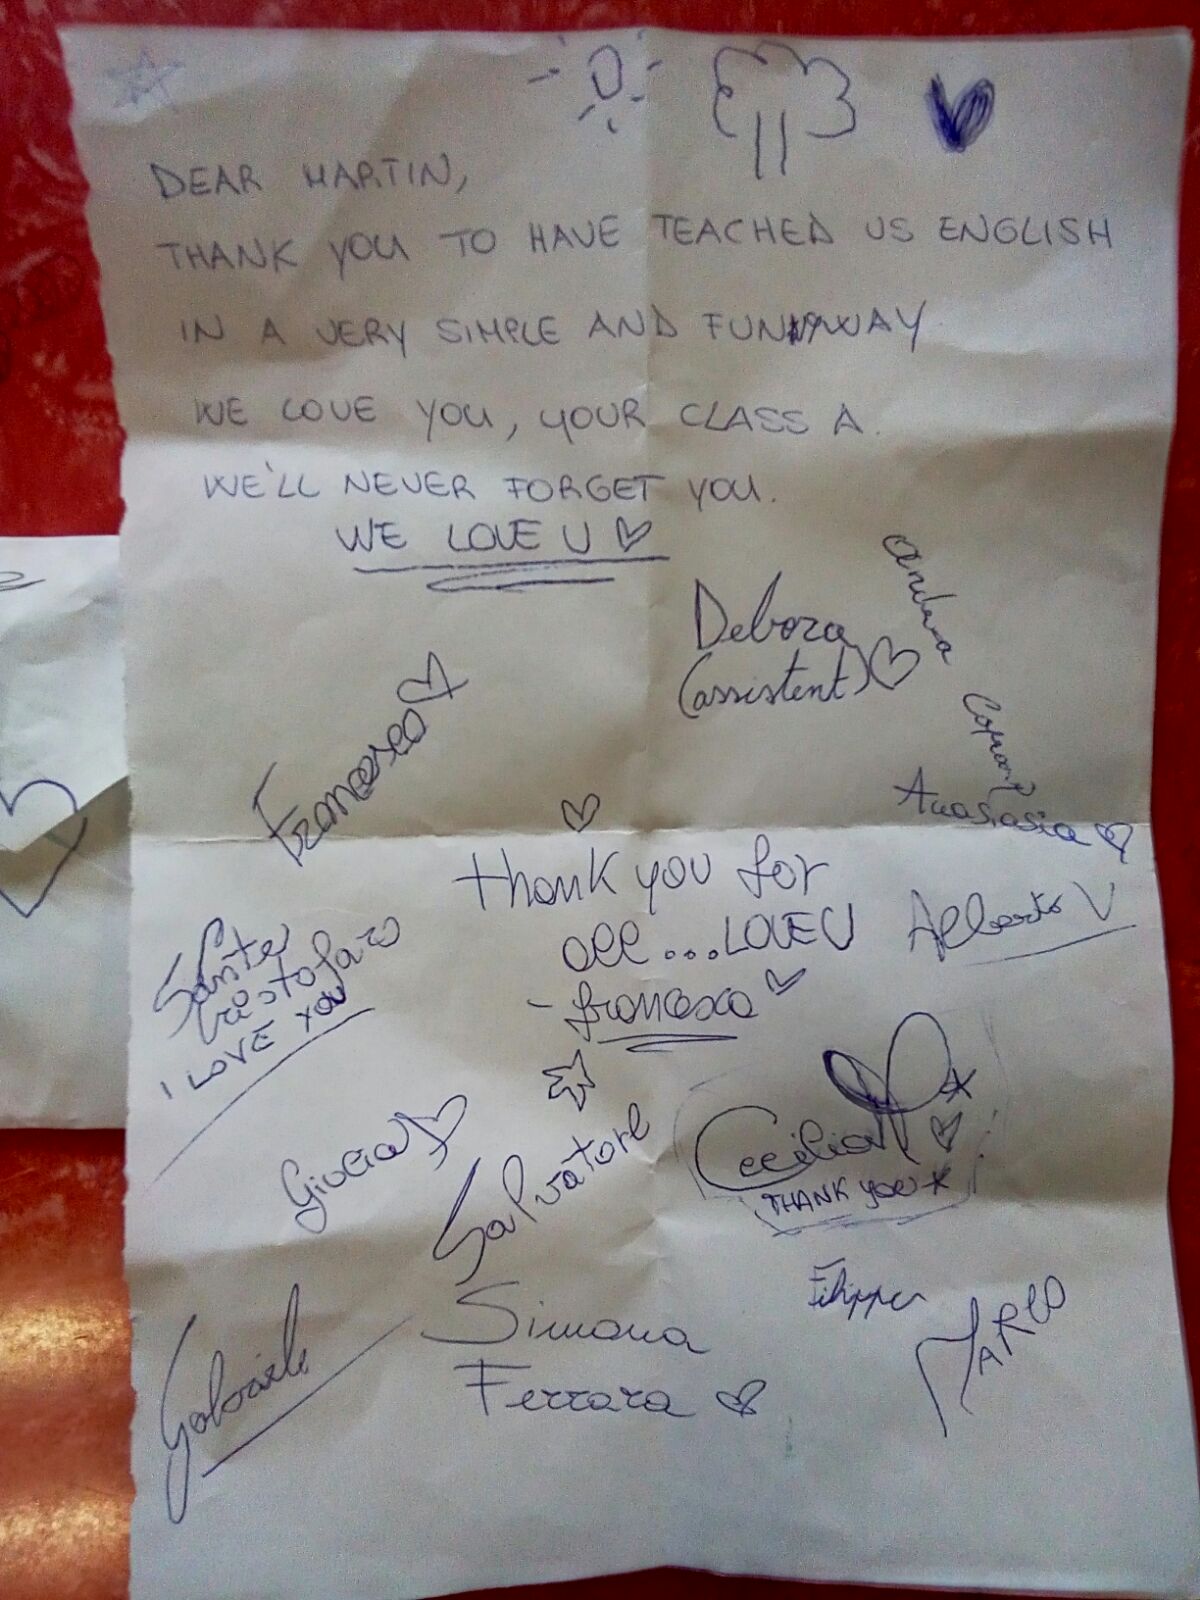 DEAR MARTIN,
THANK YOU TO HAVE TEACHED US ENGLISH
IN A VERY SIMPLE AND FUNNY WAY
WE LOVE YOU, YOUR CLASS A.
WE'LL NEVER FORGET YOU.
WE LOVE U
Debora
(assistent)
Francesco
Anastasia
thank you for
all...LOVE U
- francesca
Alberto V
Sante
Cristofaro
I LOVE YOU
Giulia
Salvatore
Cecilia
THANK YOU
Filippo
MARCO
Simona
Ferrara
Gabriele